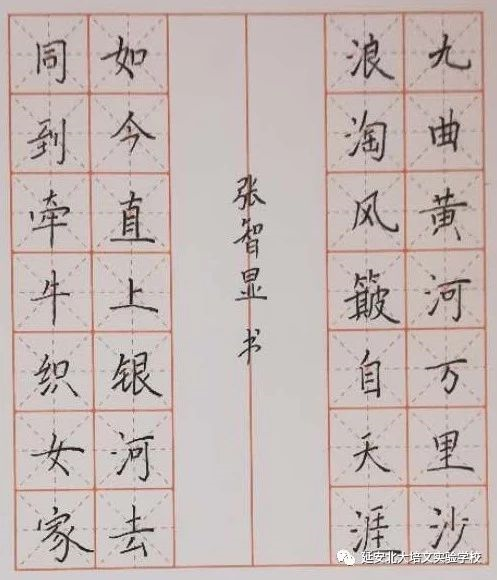 九曲黄河万里沙
浪淘风簸自天涯
张智显书
如今直上银河去
同到牵牛织女家
延安北大培文实验学校